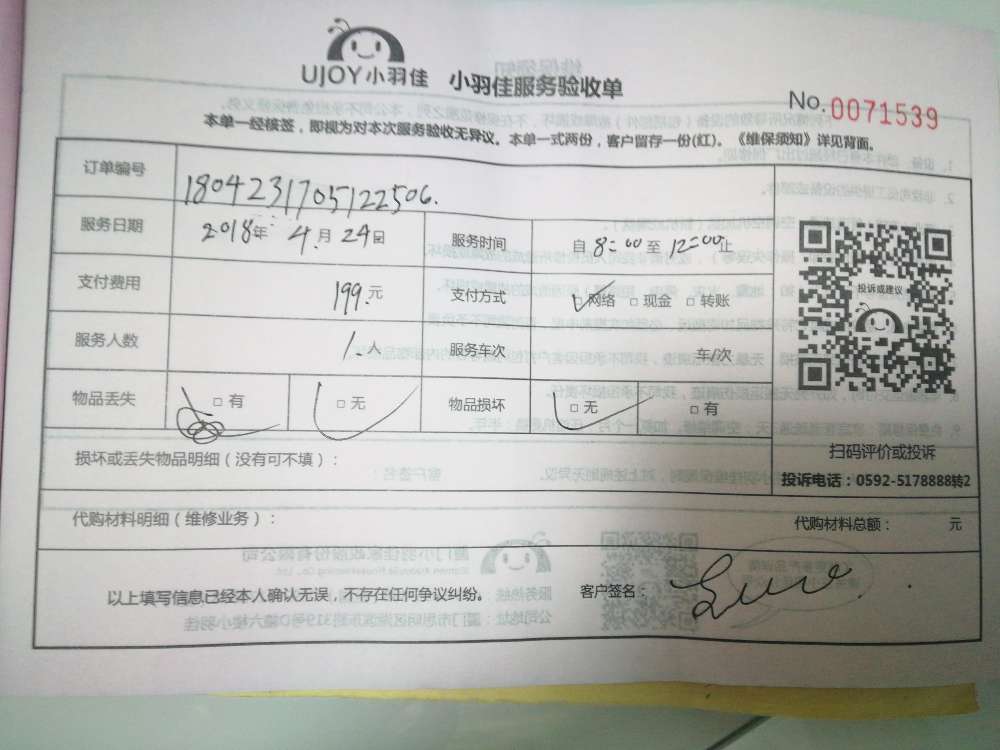 UJOY小羽佳 小羽佳服务验收单
No.0071539
本单一经核签，即视为对本次服务验收无异议。本单一式两份，客户留存一份(红)。《维保须知》详见背面。
订单编号 1804231705122506.
服务日期 2018年 4.月 24日 服务时间 自 8:00 至 12:00止
支付费用 199.元 支付方式 □网络 □现金 □转账
投诉或建议
服务人数 1.人 服务车次 车/次
物品丢失 □有 □无 物品损坏 □无 □有
扫码评价或投诉
损坏或丢失物品明细（没有可不填）：
投诉电话：0592-5178888转2
代购材料明细（维修业务）： 代购材料总额： 元
以上填写信息已经本人确认无误，不存在任何争议纠纷。 客户签名：